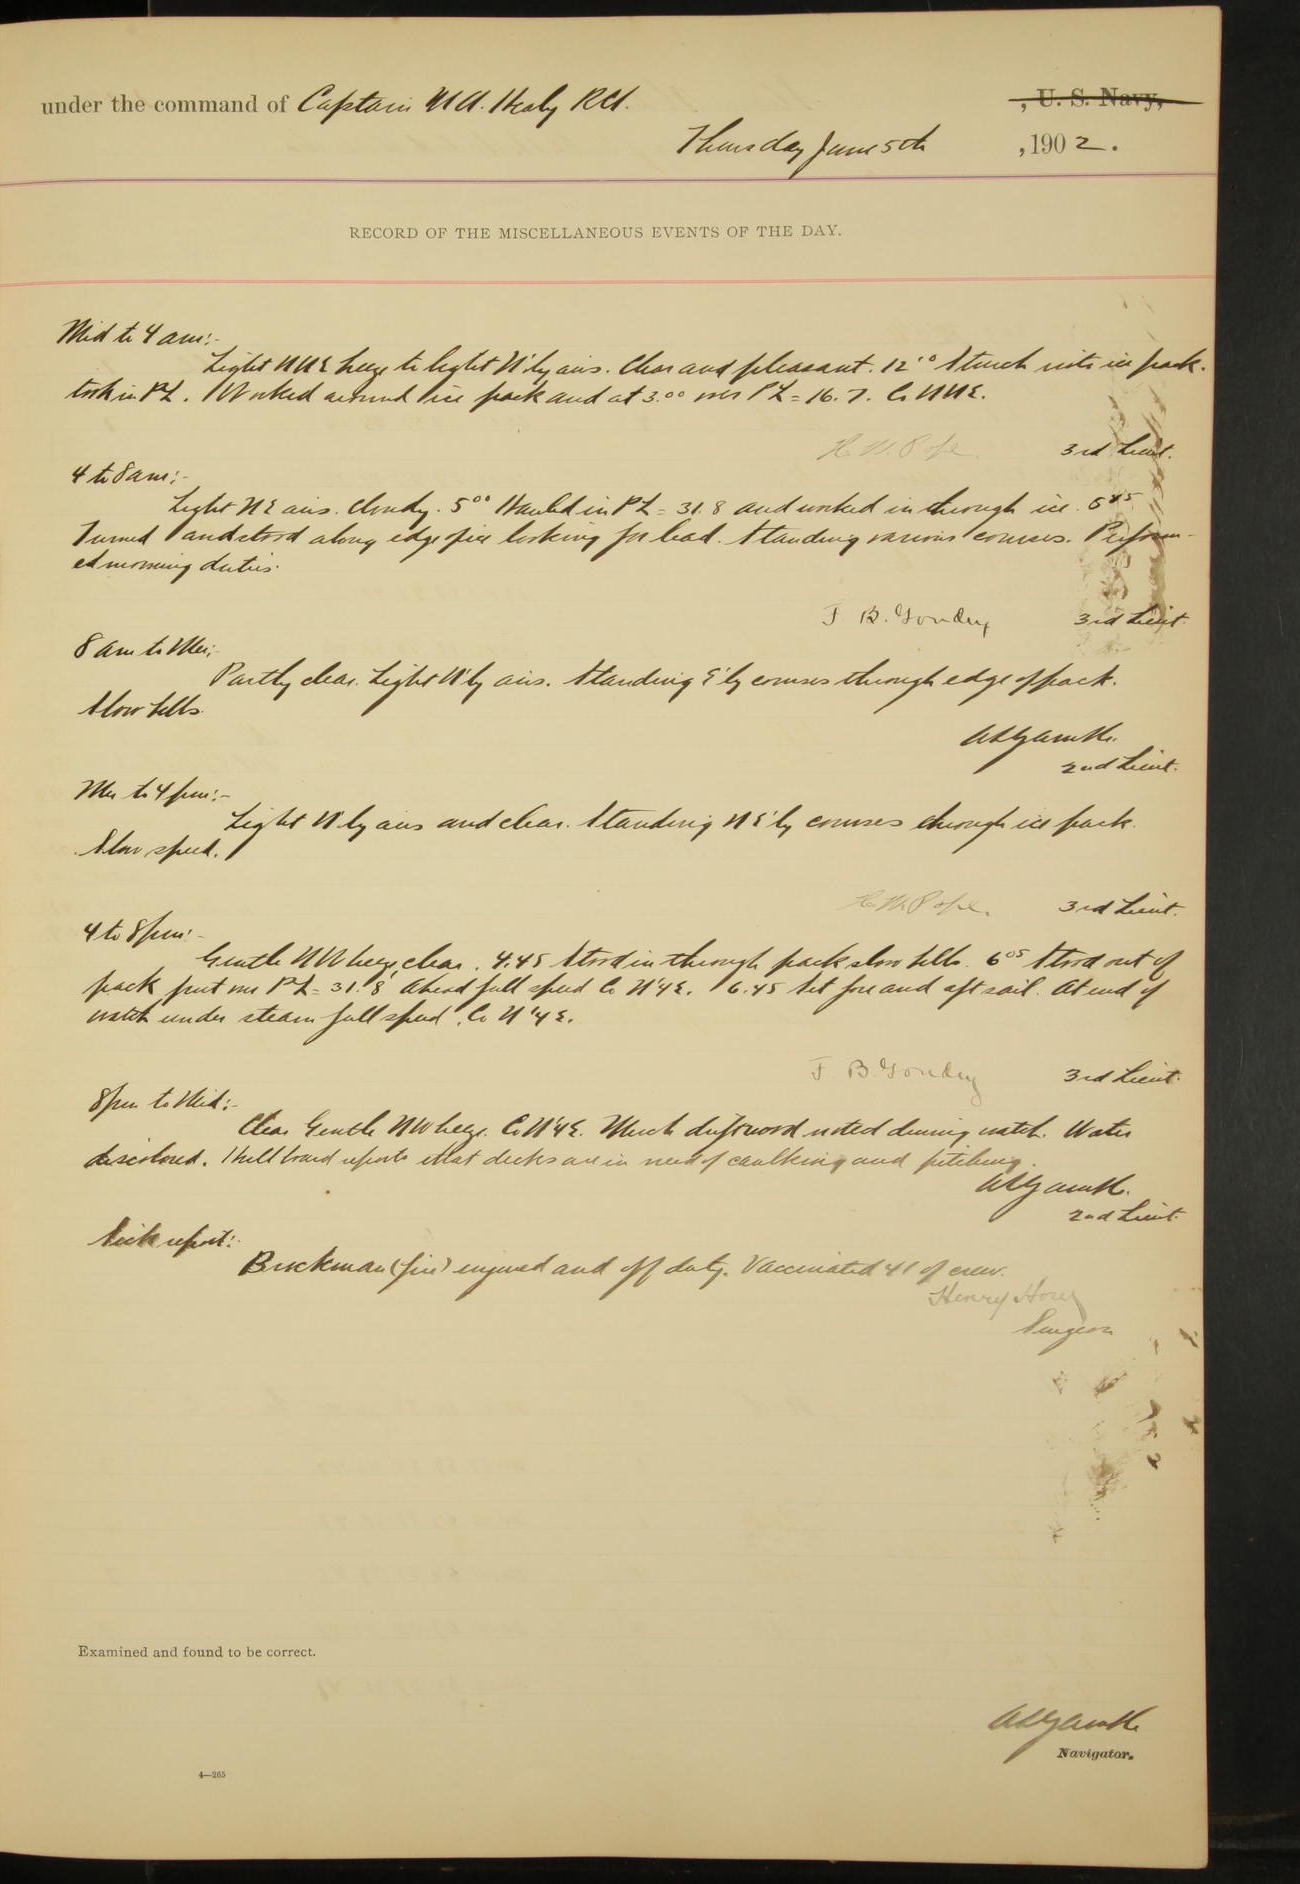 under the command of Captain M A. Healy RCS. , U. S. Navy,
Thursday June 5th , 1902.
RECORD OF THE MISCELLANEOUS EVENTS OF THE DAY.
Mid to 4 am:-
Light NNE breeze to light N'ly airs. Clear and pleasant. 12 Struck into ice pack.
took in PL. Worked around ice pack and at 3.00 over PL = 16.7. Co NNE.
H. W. Pope. 3rd Lieut.
4 to 8 am:-
Light NE airs. Cloudy. 5 00 Hauled in PL = 31.8 and worked in through ice. 5 45
Turned and stood along edge of ice looking for lead. Standing various courses. Perform-
ed morning duties.
3rd Lieut.
8 am to Mer:-
Partly clear. Light N'ly airs. Standing E'ly courses through edge of pack.
Slow bells.
2nd Lieut.
Mer to 4 pm:-
Light N'ly airs and clear. Standing NE'ly courses through ice pack.
Slow speed.
H. W. Pope. 3rd Lieut.
4 to 8 pm:-
Gentle NW breeze, clear. 4.45 Stood in through pack slow bells. 6 05 Stood out of
pack put over PL = 31.8 Ahead full speed Co N'4E. 6.45 Set fore and aft sail. At end of
watch under steam full speed. Co N'4E.
3rd Lieut.
8 pm to Mid:-
Clear Gentle NW breeze. Co N'4E. Much driftwood noted during watch. Water
discolored. Hull board reports that decks are in need of caulking and pitching.
2nd Lieut.
Sick report:-
(fire) injured and off duty. Vaccinated 41 of crew.
Henry
Surgeon
Examined and found to be correct.
Navigator.
4—265